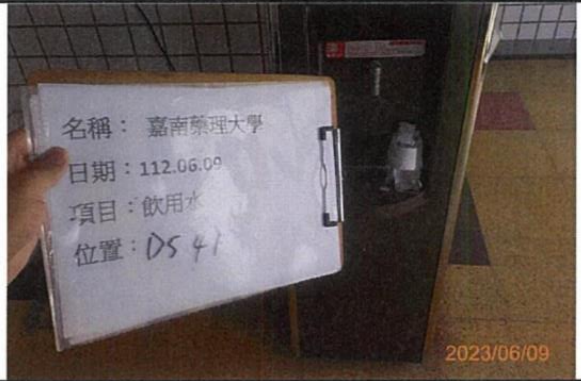 名稱： 嘉南藥理大學
日期：112.06.09
項目：飲用水
位置：DS 4F
2023/06/09